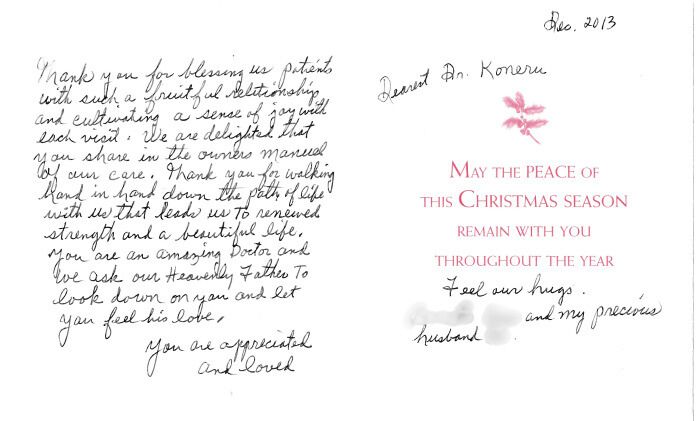 Thank you for blessing us patients
with such a fruitful relationship
and cultivating a sense of joy with
each visit. We are delighted that
you share in the owners manual
of our care. Thank you for walking
hand in hand down the path of life
with us that leads us to renewed
strength and a beautiful life.
You are an amazing Doctor and
we ask our Heavenly Father to
look down on you and let
you feel his love.
You are appreciated
and loved
Dec. 2013
Dearest Dr. Koneru
MAY THE PEACE OF
THIS CHRISTMAS SEASON
REMAIN WITH YOU
THROUGHOUT THE YEAR
Feel our hugs.
and my precious
husband .